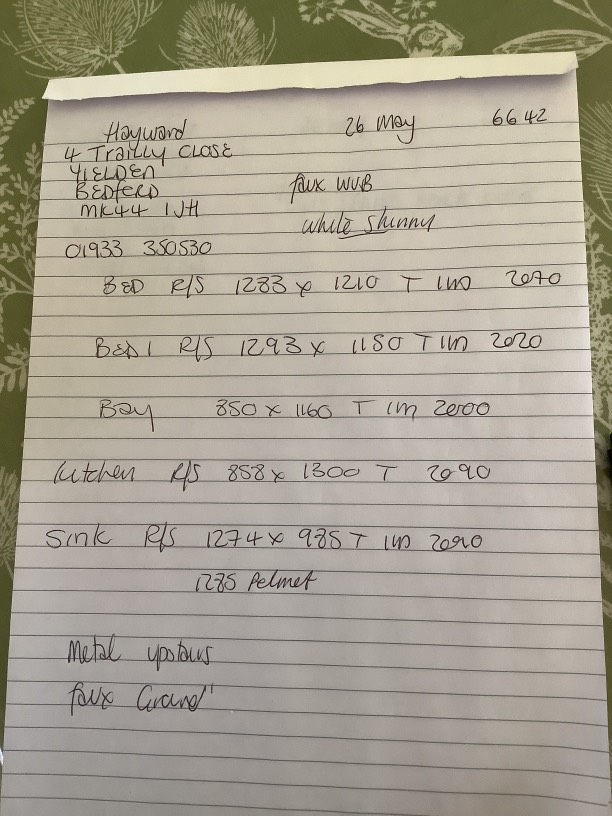 Hayward 26 May 6642
4 Trailly Close
Yielden
Bedford
MK44 1JH
faux WUB
white skinny
01933 350530
BED R/S 1283 x 1210 T IM 2070
BED 1 R/S 1293 x 1180 T IM 2020
Bay 850 x 1160 T IM 2000
kitchen R/S 858 x 1300 T 2090
Sink R/S 1274 x 985 T IM 2090
1285 Pelmet
Metal upstairs
faux Ground